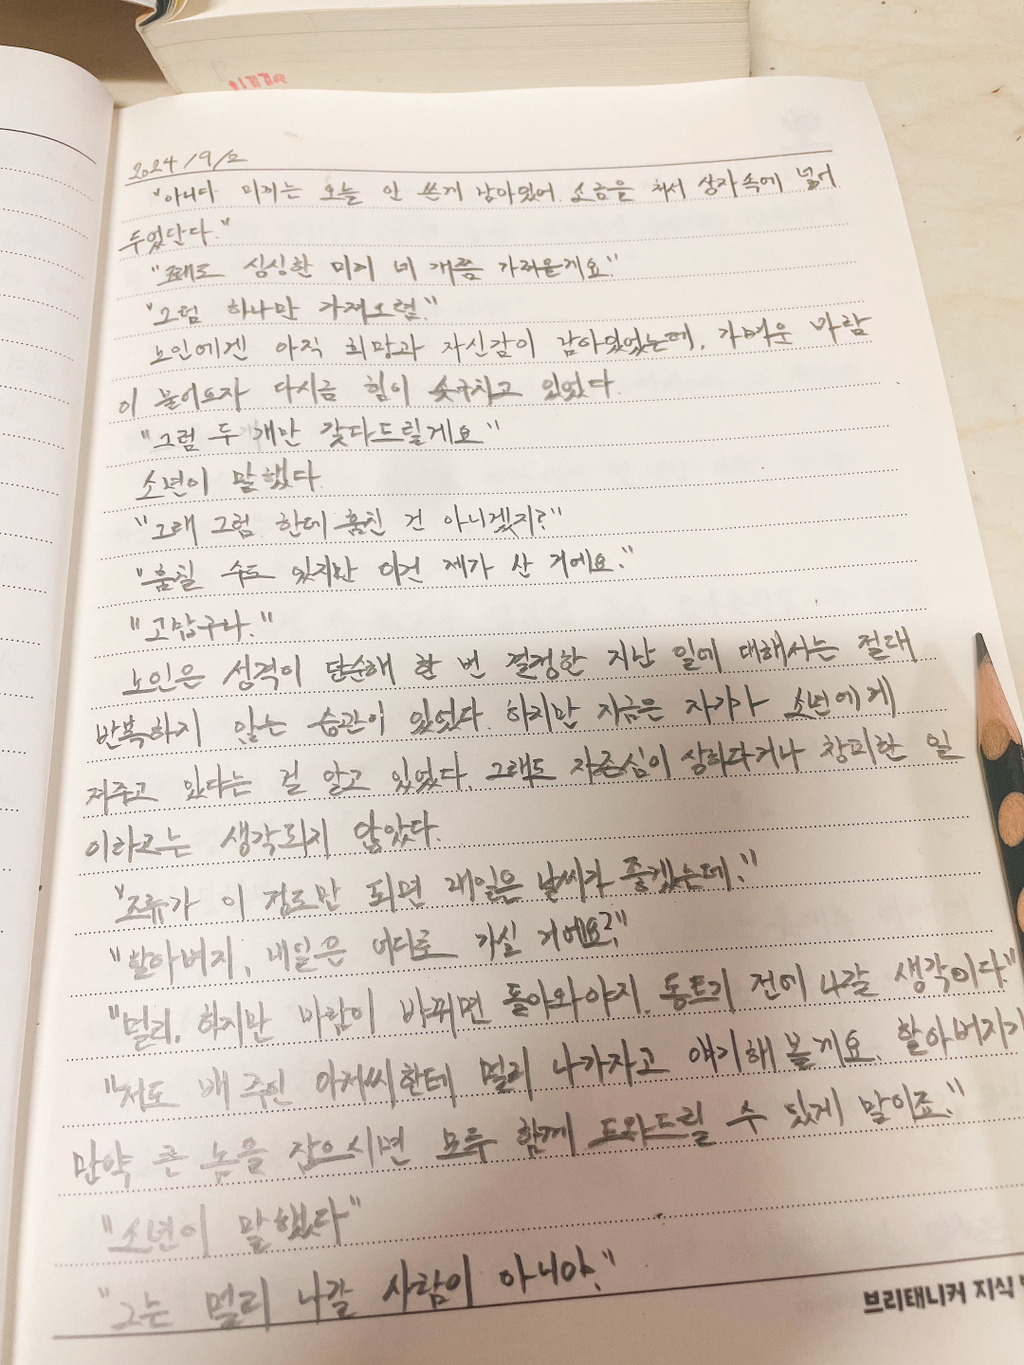 2024/9/2
"아니다 미끼는 오늘 안 쓴게 남아있어. 소금을 쳐서 상자속에 넣어
두었단다."
"싱싱한 미끼 네 개쯤 가져올게요."
"그럼 하나만 가져오렴."
노인에겐 아직 희망과 자신감이 남아있었는데, 가벼운 바람
이 불어오자 다시금 힘이 솟구치고 있었다.
"그럼 두 개만 갖다드릴게요"
소년이 말했다
"그래 그럼. 한데 훔친 건 아니겠지?"
"훔칠 수도 있지만 이건 제가 산 거에요."
"고맙구나."
노인은 성격이 단순해 한 번 결정한 지난 일에 대해서는 절대
반복하지 않는 습관이 있었다. 하지만 지금은 자기가 소년에게
져주고 있다는 걸 알고 있었다. 그래도 자존심이 상하다거나 창피한 일
이라고는 생각되지 않았다.
"조류가 이 정도만 되면 내일은 날씨가 좋겠는데."
"할아버지, 내일은 어디로 가실 거에요?"
"멀리. 하지만 바람이 바뀌면 돌아와야지. 동트기 전에 나갈 생각이다."
"저도 배 주인 아저씨한테 멀리 나가자고 얘기해 볼게요. 할아버지가
만약 큰 놈을 잡으시면 모두 함께 도와드릴 수 있게 말이죠."
"소년이 말했다"
"그는 멀리 나갈 사람이 아니야."
브리태니커 지식